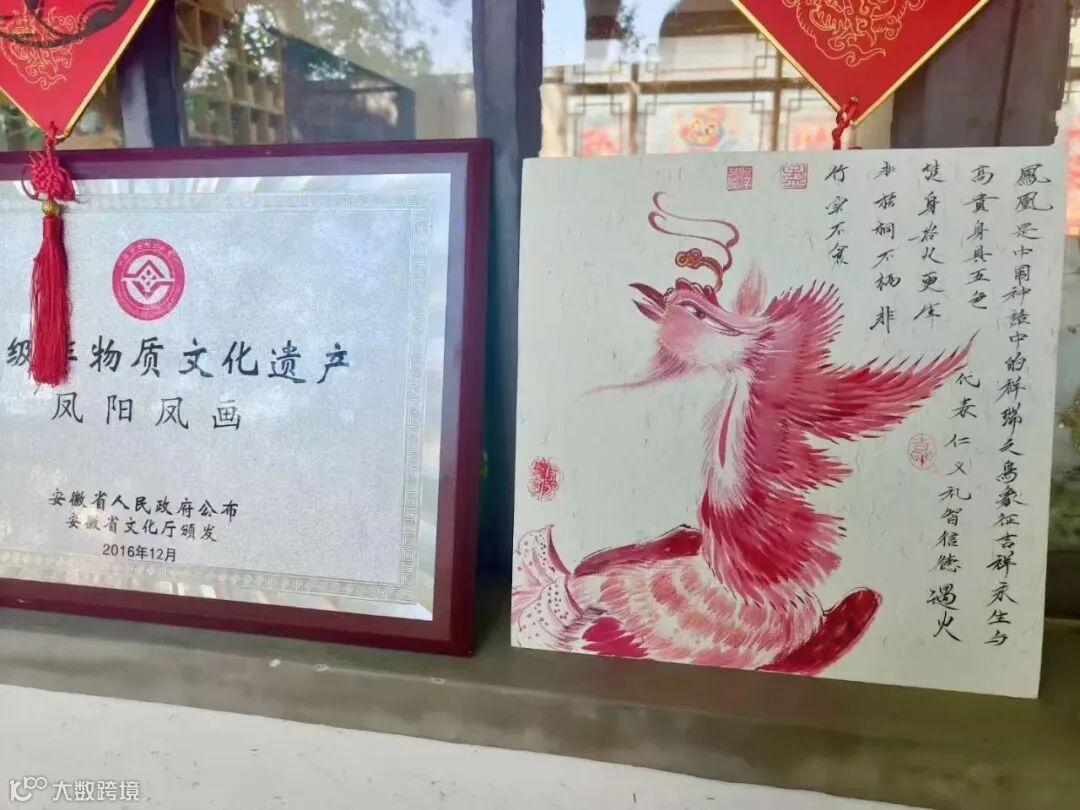 级非物质文化遗产
凤阳凤画
安徽省人民政府公布
安徽省文化厅颁发
2016年12月
鳳凰是中国神話中的祥瑞之鳥象征吉祥永生与
高貴身具五色
代表仁义礼智信德遇火
身火更生
非梧桐不栖非
竹实不食
大数跨境